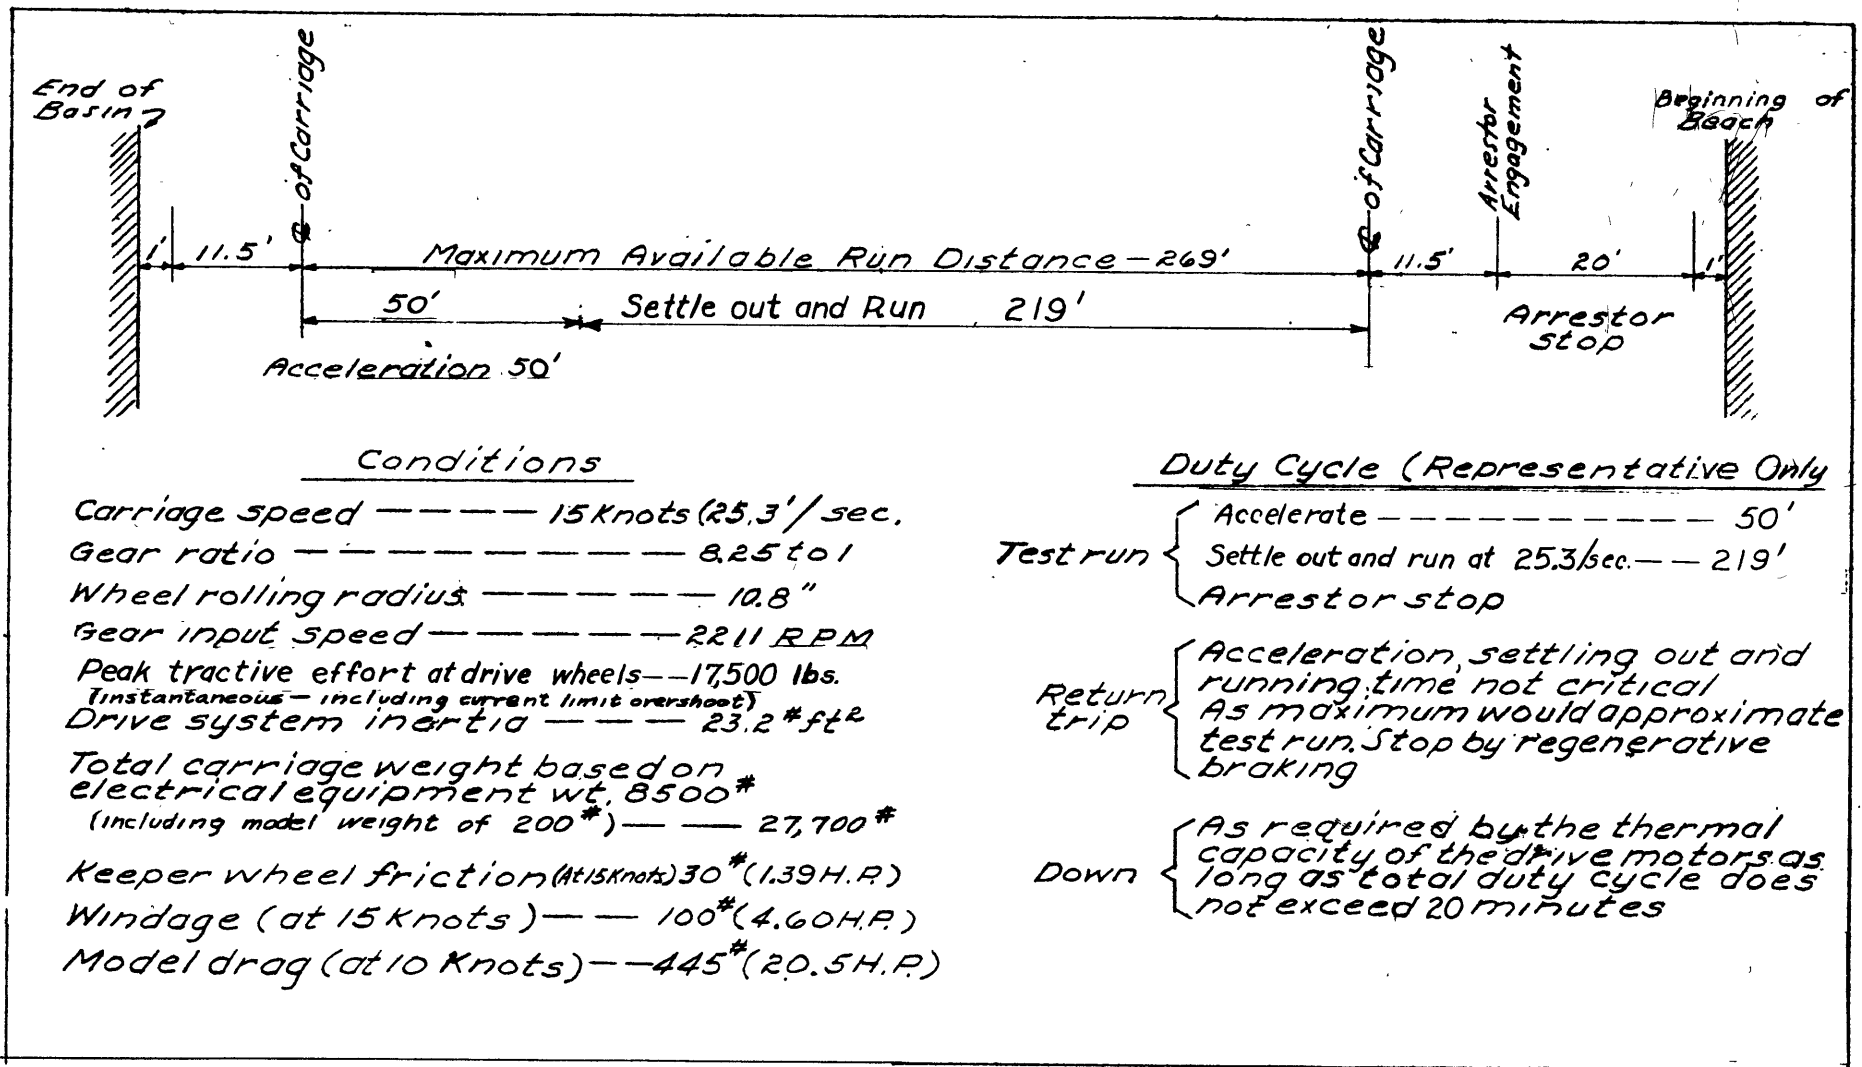 End of
Basin
℄ of Carriage
℄ of Carriage
Arrestor
Engagement
Beginning of
Beach
1'
11.5'
Maximum Available Run Distance — 269'
11.5'
20'
1'
50'
Settle out and Run 219'
Arrestor
stop
Acceleration 50'
Conditions
Carriage speed — — — — 15 Knots (25.3'/sec.
Gear ratio — — — — — — — — 8.25 to 1
Wheel rolling radius — — — — — 10.8"
Gear input speed — — — — — 2211 RPM
Peak tractive effort at drive wheels — — 17,500 lbs.
(instantaneous — including current limit overshoot)
Drive system inertia — — — 23.2 # ft²
Total carriage weight based on
electrical equipment wt. 8500#
(including model weight of 200#) — — 27,700#
Keeper wheel friction (At 15 Knots) 30# (1.39 H.P.)
Windage (at 15 Knots) — — 100# (4.60 H.P.)
Model drag (at 10 Knots) — — 445# (20.5 H.P.)
Duty Cycle (Representative Only
Test run
Accelerate — — — — — — — — — — 50'
Settle out and run at 25.3/sec. — — 219'
Arrestor stop
Return
trip
Acceleration, settling out and
running time not critical
As maximum would approximate
test run. Stop by regenerative
braking
Down
As required by the thermal
capacity of the drive motors as
long as total duty cycle does
not exceed 20 minutes